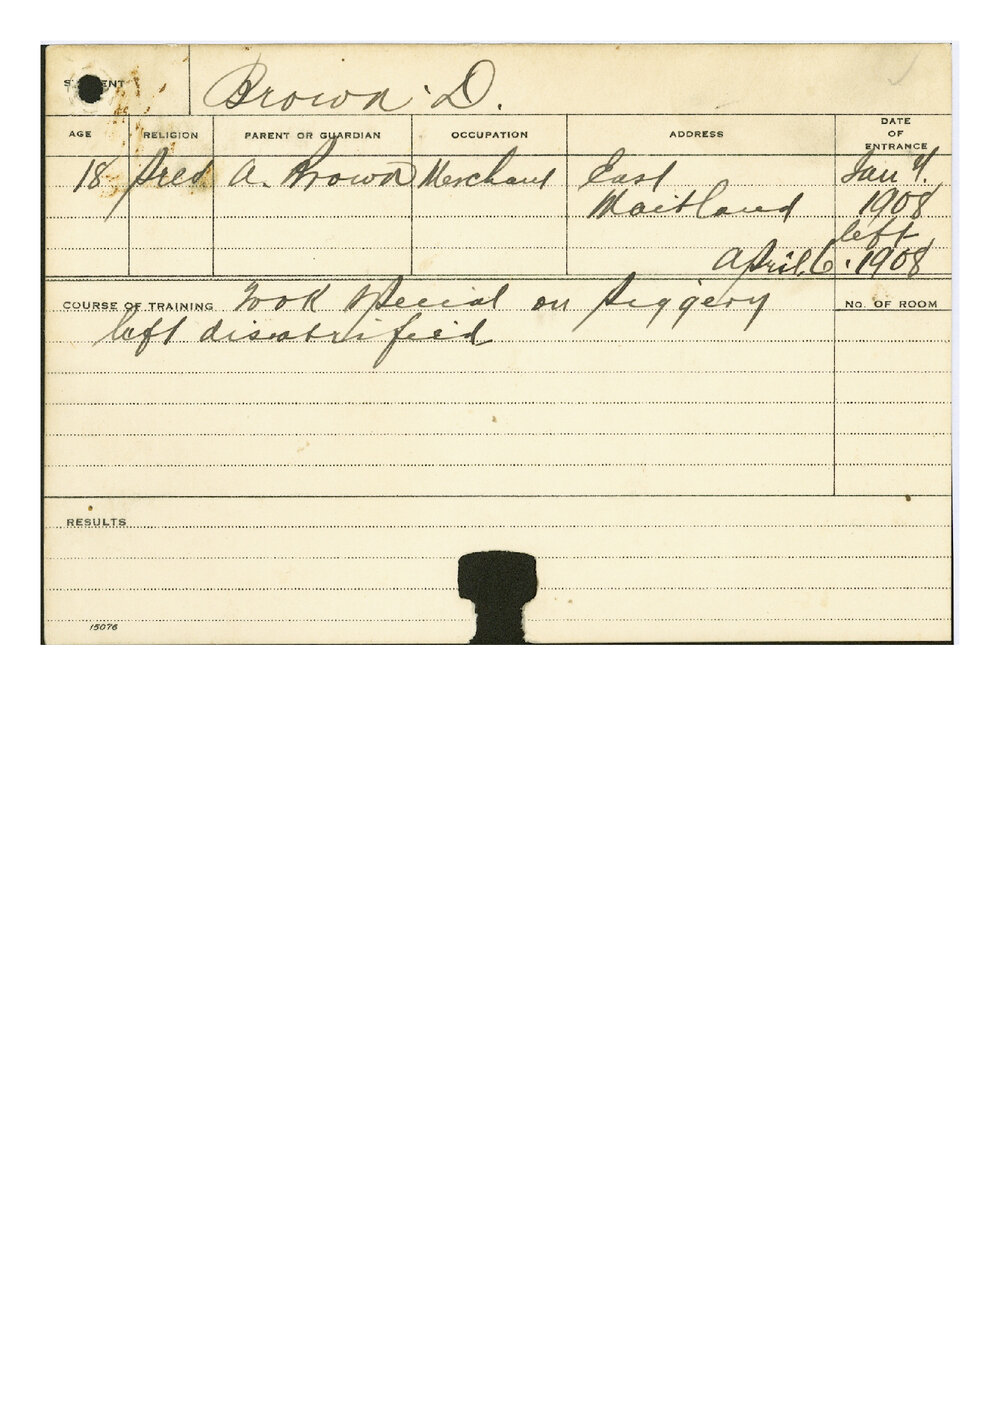 STUDENT Brown D.
AGE RELIGION PARENT OR GUARDIAN OCCUPATION ADDRESS DATE OF ENTRANCE
18 Pres A. Brown Merchant East Jan
Maitland 1908
left
April 6. 1908
COURSE OF TRAINING Took special on piggery NO. OF ROOM
left dissatisfied
RESULTS
15076